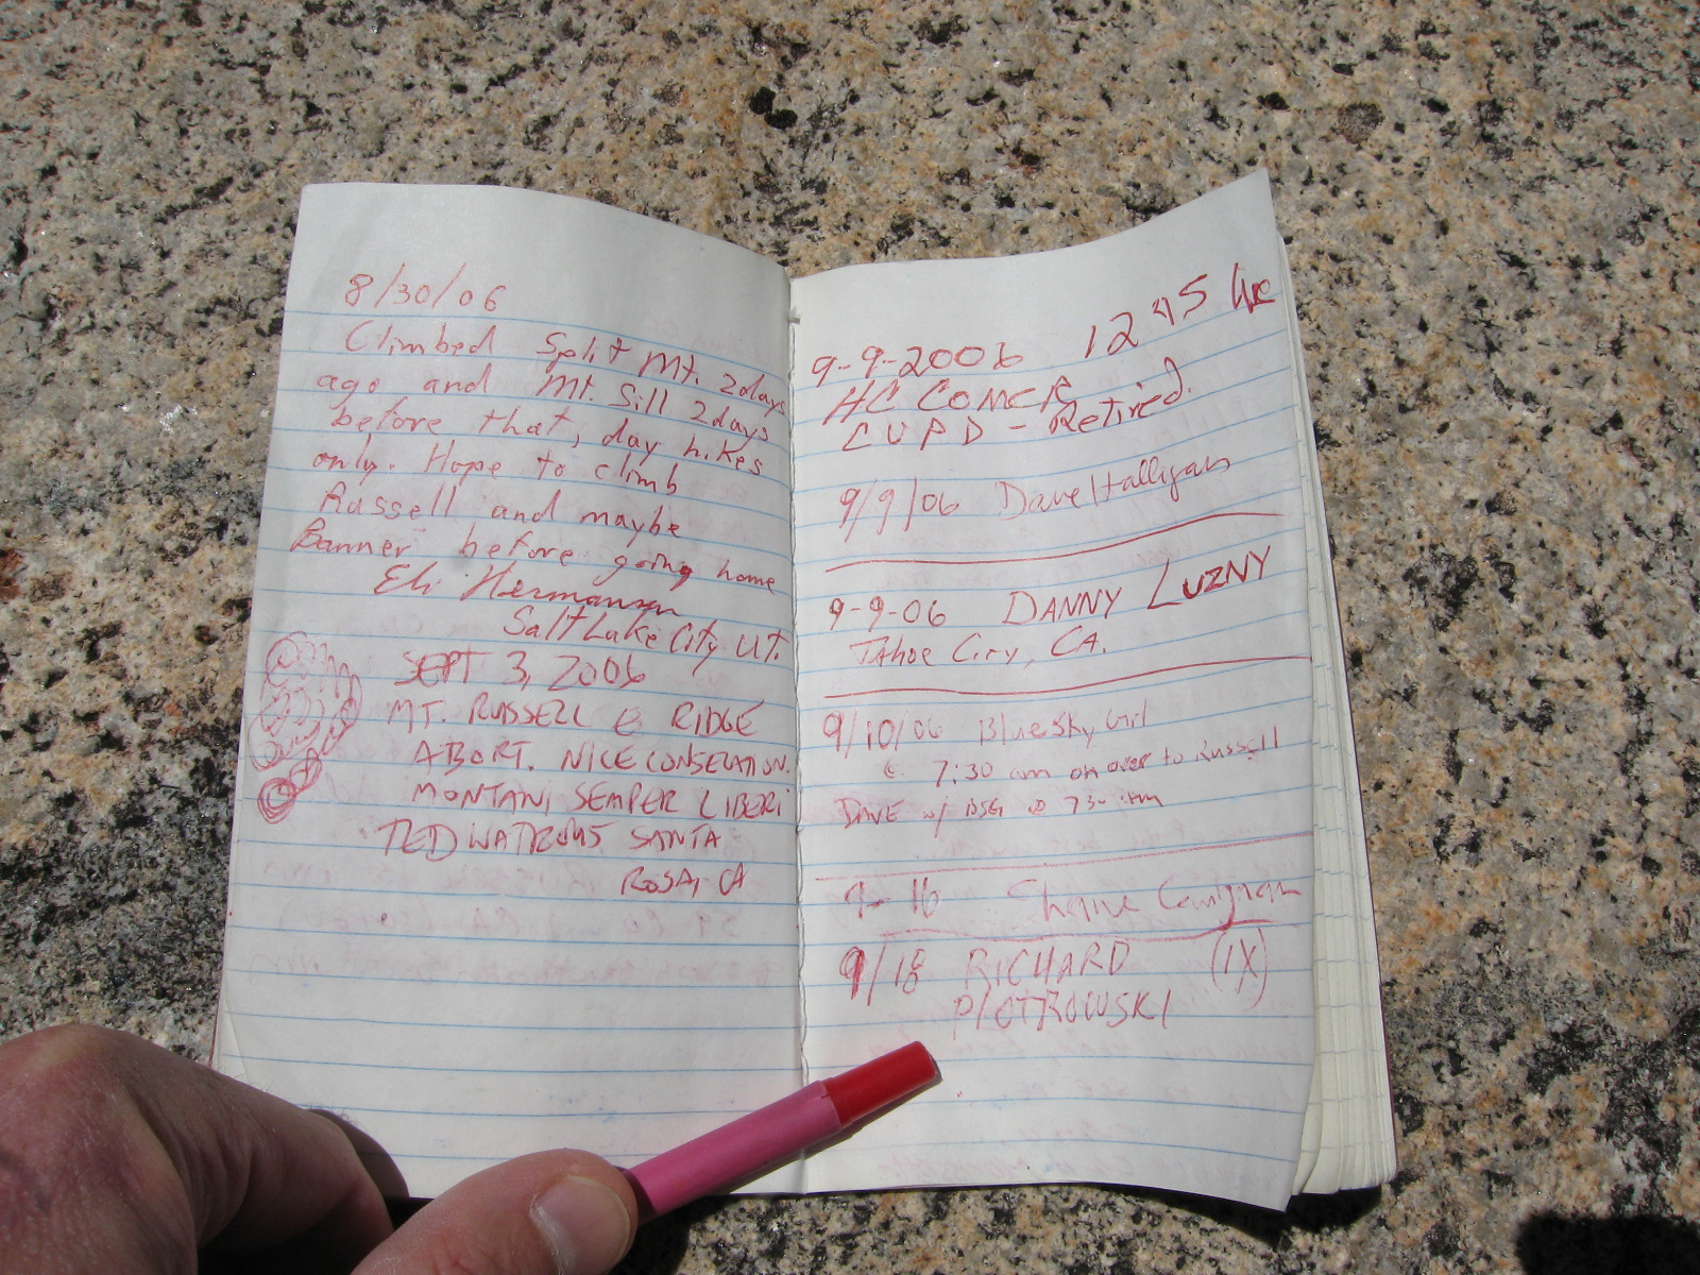 8/30/06
Climbed Split Mt. 2days
ago and Mt. Sill 2days
before that, day hikes
only. Hope to climb
Russell and maybe
Banner before going home
Eli Hermansen
Salt Lake City UT.
SEPT 3, 2006
MT. RUSSELL E RIDGE
ABORT. NICE CONSELATION.
MONTANI SEMPER LIBERI
TED WATROUS SANTA
ROSA, CA
9-9-2006 1245
HC COMER
CUPD - Retired.
9/9/06 Dave Halligan
9-9-06 DANNY LUZNY
TAhoe City, CA.
9/10/06 Blue Sky Girl
@ 7:30 am on over to Russell
DAVE w/ BSG @ 730 am
9-16 Carignan
9/18 RICHARD (1X)
PIOTROWSKI